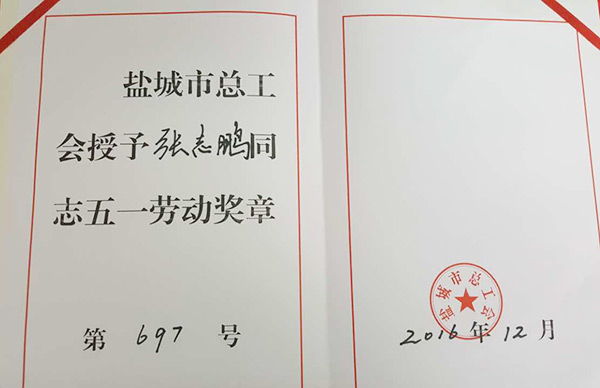 盐城市总工
会授予张志鹏同
志五一劳动奖章
第 697 号
盐城市总工会
2016年12月